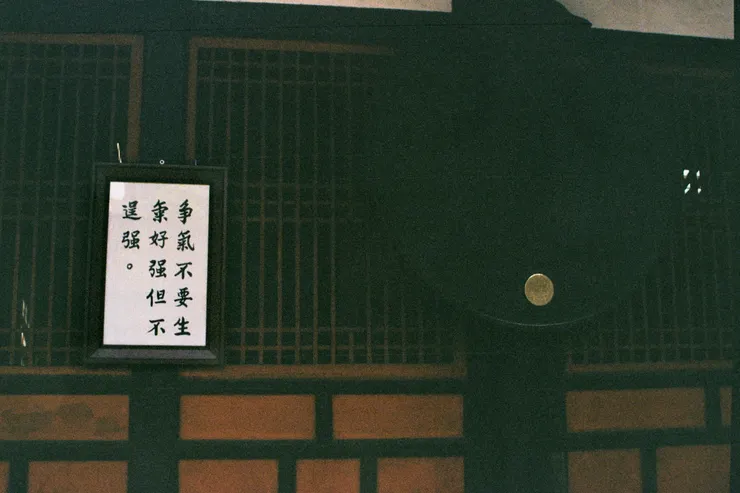 爭氣不要生
氣好强但不
逞强。